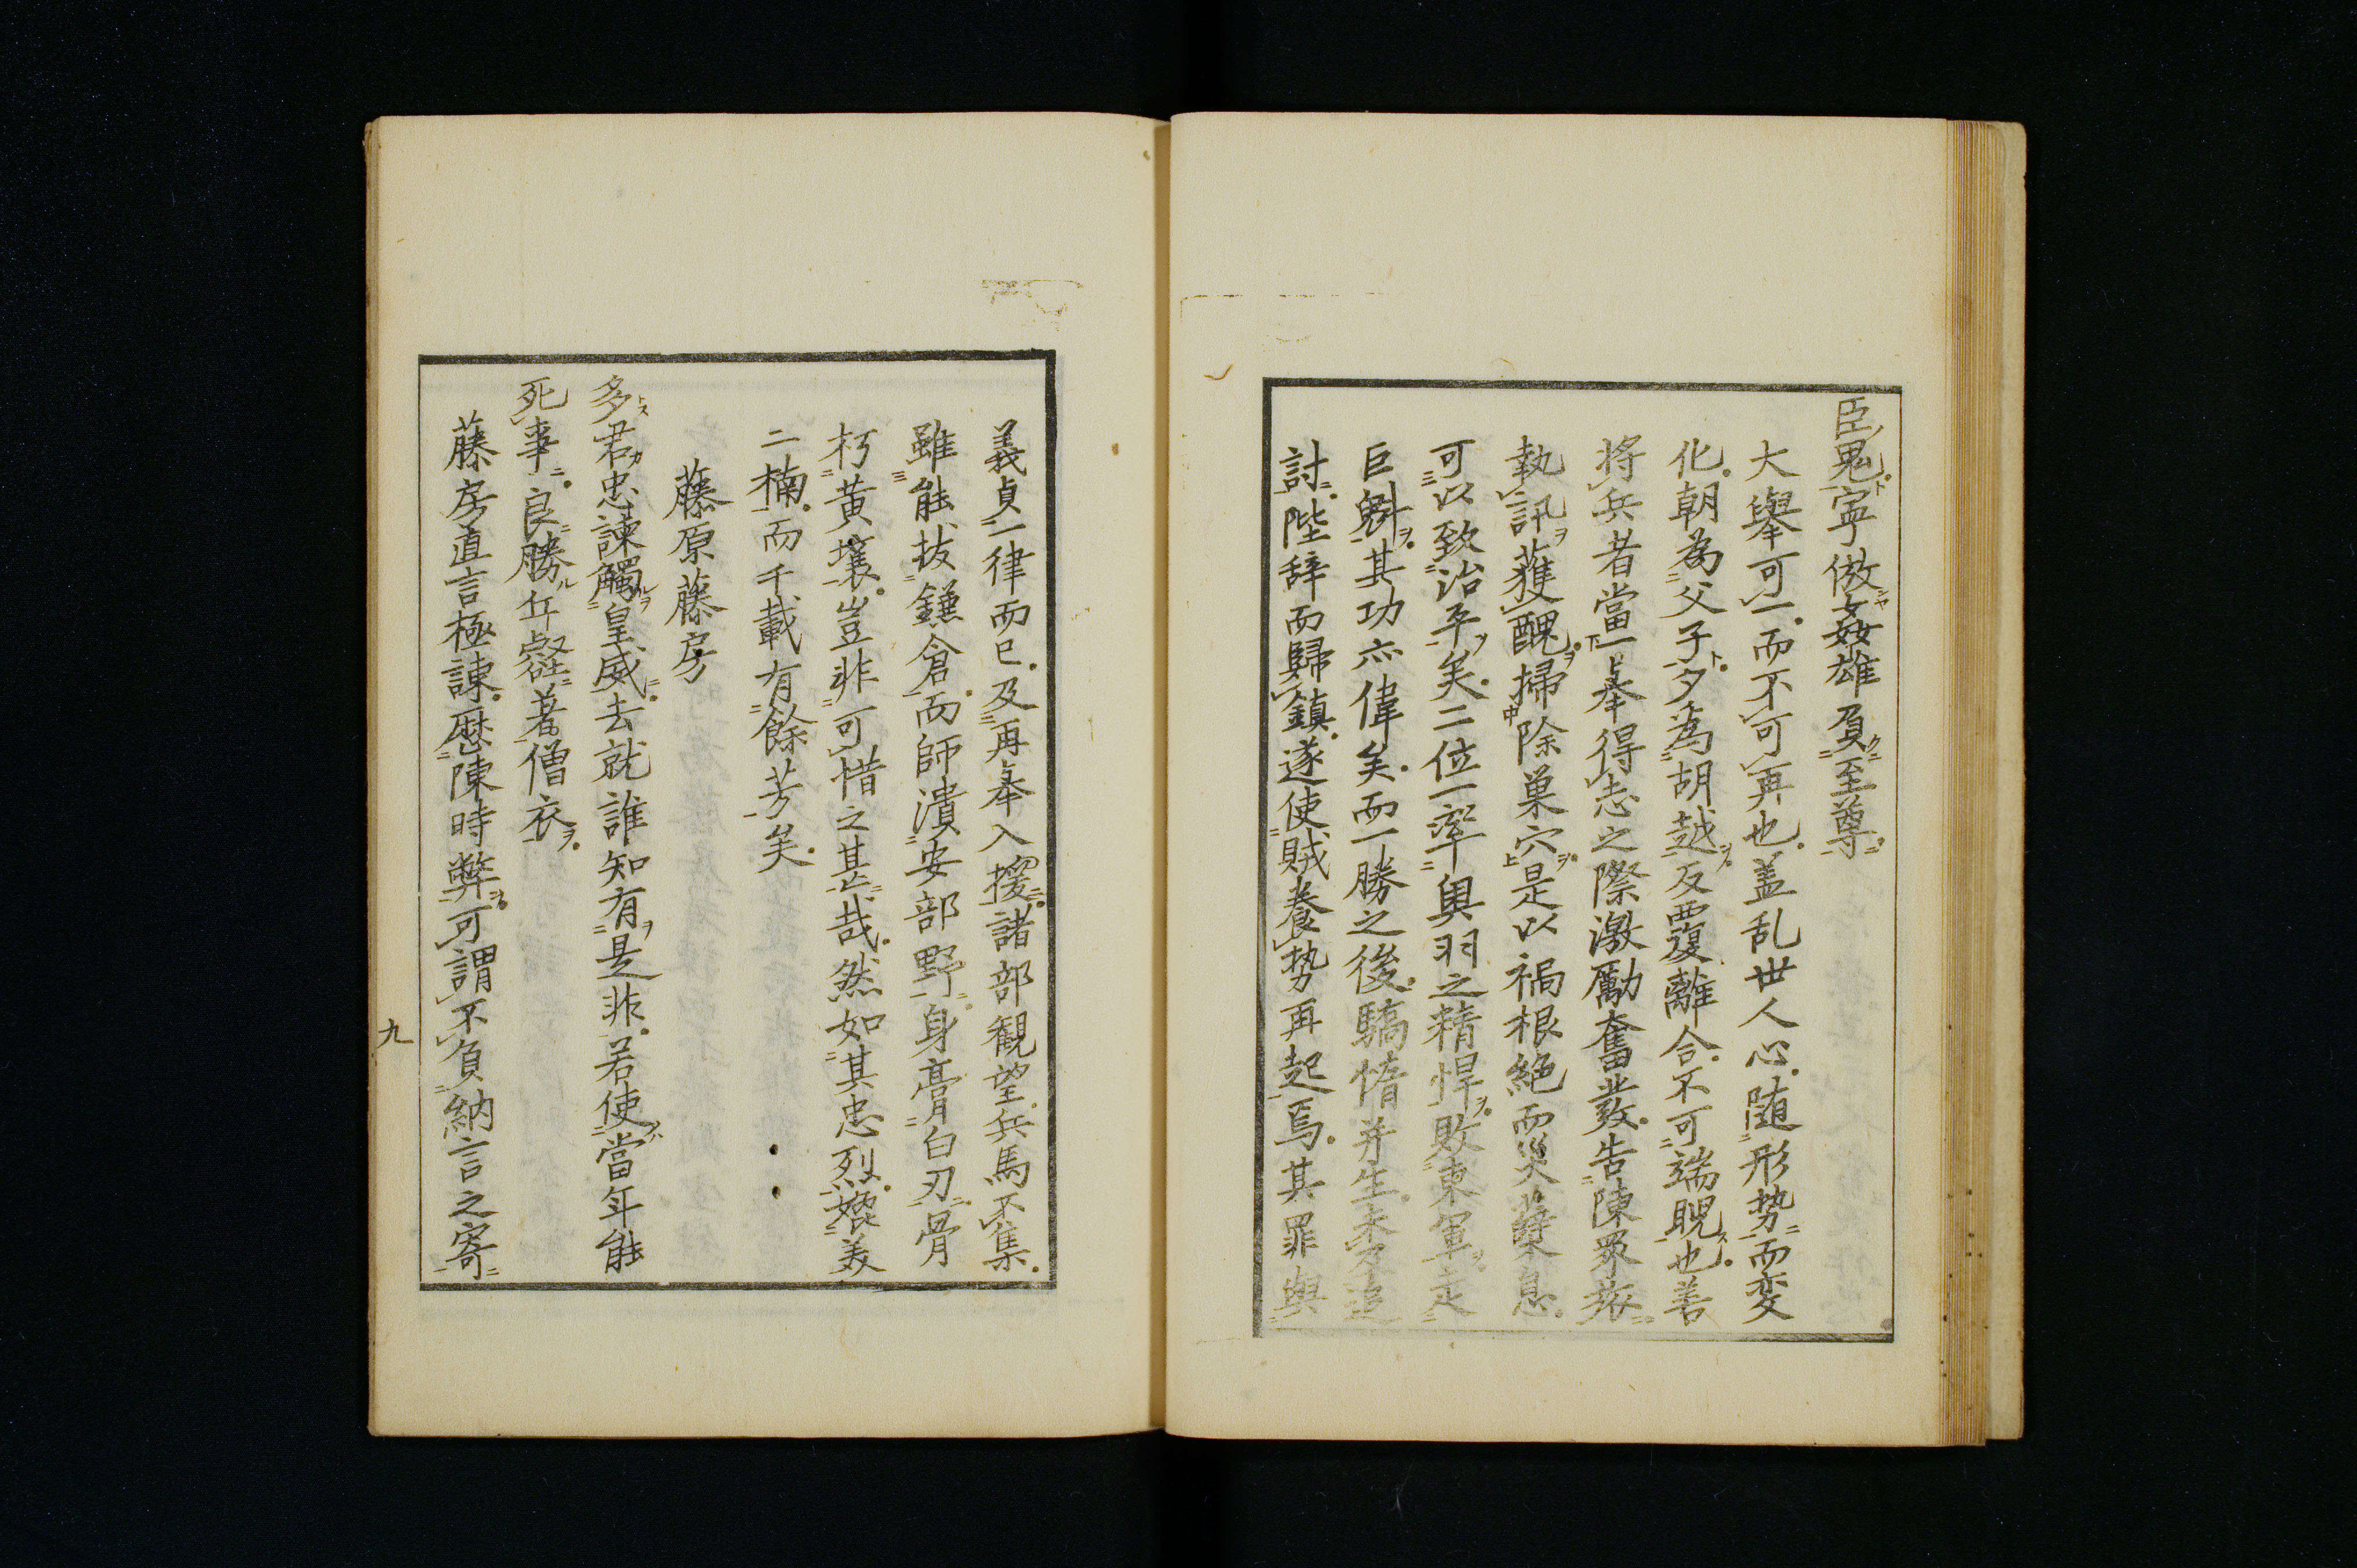 臣鬼寧倣姦雄負至尊
大擧可一而不可再也盖乱世人心随形势而変
化朝為父子夕為胡越反覆離合不可端睨也善
将兵者當一挙得志之際激勵奮發告陳眾旅
執訊獲醜掃除巣穴是以禍根絶而災蘖息
可以致治平矣二位一率奥羽之精悍敗東軍走
巨魁其功亦偉矣而一勝之後驕惰并生未及追
討陛辞而歸鎮遂使賊養势再起焉其罪與
義貞一律而已及再挙入援諸部観望兵馬不集
雖能抜鎌倉而師潰安部野身膏白刃骨
朽黄壌豈非可惜之甚哉然如其忠烈媲美
二楠而千載有餘芳矣
藤原藤房
多君忠諫觸皇威去就誰知有是非若使當年能
死事良勝丘壑著僧衣
藤房直言極諫歴陳時弊可謂不負納言之寄
九